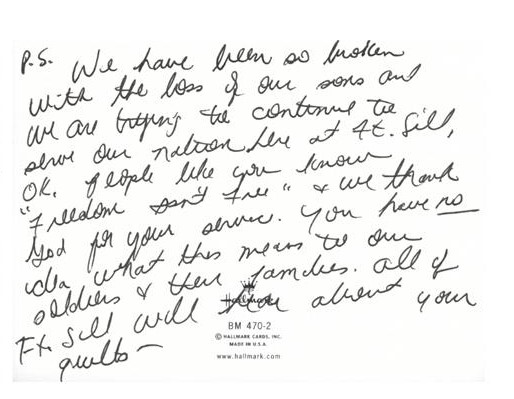 P.S. We have been so broken
with the loss of our sons and
we are trying to continue to
serve our nation here at Ft. Sill,
OK. People like you know
"Freedom isn't Free" & we thank
God for your service. You have no
idea what this means to our
soldiers & their families. All of
Ft. Sill will hear about your
quilts –
Hallmark
BM 470-2
© HALLMARK CARDS, INC.
MADE IN U.S.A.
www.hallmark.com